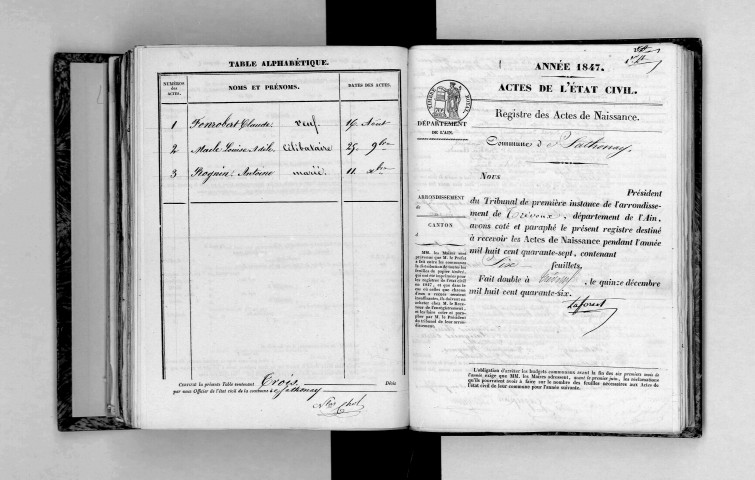 TABLE ALPHABÉTIQUE.
NUMÉROS des ACTES. NOMS ET PRÉNOMS. DATES DES ACTES.
1 Fonrobert Claude. veuf 16. Août
2 Louise Adèle. Célibataire 25. 9bre
3 Rognin. Antoine marié. 11. xbre
Certifié la présente Table contenant Trois Décès
par nous Officier de l'état civil de la commune de Sathonay
ANNÉE 1847.
ACTES DE L'ÉTAT CIVIL.
Registre des Actes de Naissance.
TIMBRE ROYAL
DÉPARTEMENT
DE L'AIN.
Commune d Sathonay.
ARRONDISSEMENT
d
CANTON
d
MM. les Maires sont
prévenus que M. le Préfet
a fait entre les communes
la distribution de toutes les
feuilles de papier timbré,
qui ont été imprimées pour
les registres de l'état civil
en 1847, et que dans le
cas où celles que chacun
d'eux a reçues seraient
insuffisantes, ils devront en
acheter chez M. le Receveur
de l'enregistrement,
et les faire coter et parapher
par M. le Président
du tribunal de leur arrondissement.
NOUS
Président
du Tribunal de première instance de l'arrondissement
de Trévoux, département de l'Ain,
avons coté et paraphé le présent registre destiné
à recevoir les Actes de Naissance pendant l'année
mil huit cent quarante-sept, contenant
Six feuillets.
Fait double à Trévoux, le quinze décembre
mil huit cent quarante-six.
Laforest
L'obligation d'arrêter les budgets communaux avant la fin des six premiers mois de
l'année exige que MM. les Maires adressent, avant le premier juin, les réclamations
qu'ils pourraient avoir à faire sur le nombre des feuilles nécessaires aux Actes de
l'état civil de leur commune pour l'année suivante.